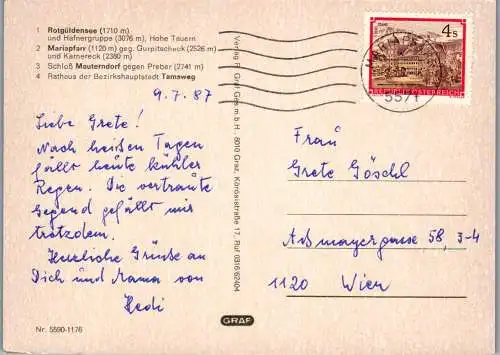 1 Rotgüldensee (1710 m)
und Hafnergruppe (3076 m), Hohe Tauern
2 Mariapfarr (1120 m) geg. Gurpitscheck (2526 m)
und Karnereck (2380 m)
3 Schloß Mauterndorf gegen Preber (2741 m)
4 Rathaus der Bezirkshauptstadt Tamsweg
9.7.87
Liebe Grete!
Nach heißen Tagen
fällt heute kühler
Regen. Die vertraute
Gegend gefällt mir
trotzdem.
Herzliche Grüße an
Dich und Mama von
Hedi
Nr. 5590-1176
Verlag P. Graf Ges.m.b.H., 8010 Graz, Körösistraße 17, Ruf 0316/62404
GRAF
4 S
REPUBLIK ÖSTERREICH
5571
Frau
Grete Göschl
Aßmayergasse 58, 3-4
1120 Wien